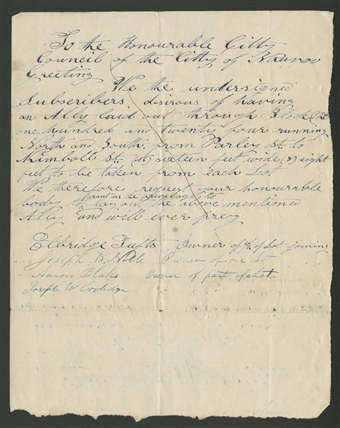 To the Honourable Citty
Council of the Citty of Nauvoo
Greeting
We the undersigned
Subscribers, desirous of having
an Ally laid out through Block
one hundred and twenty four running
North and South, from Parley St to
Kimbolls St, sixteen feet wide, eight
feet to be taken from each Lot
We therefore request your honourable
body to lay out the above mentioned
Ally and will ever pray
Elbridge Tufts Owner of of Lot
Joseph B. Noble Owner of one Lot
Owner of part of lot
Joseph W Coolidge " " "